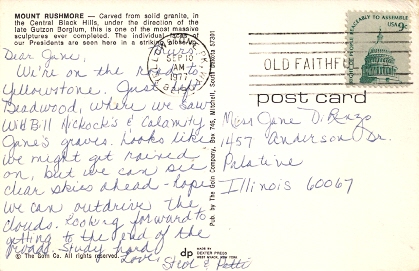 MOUNT RUSHMORE — Carved from solid granite, in
the Central Black Hills, under the direction of the
late Gutzon Borglum, this is one of the most massive
sculptures ever completed. The individual faces of
our Presidents are seen here in a striking
Thurs.
Dear Jane,
We're on the road to
Yellowstone. Just left
Deadwood, where we saw
Wild Bill Hickock's & Calamity
Jane's graves. Looks like
we might get rained
on, but we can see
clear skies ahead - hope
we can outdrive the
clouds. Looking forward to
getting to the end of the
road. Study hard
Love,
Steve & Patti
© The Goin Co. All rights reserved.
Pub. by The Goin Company, Box 745, Mitchell, South Dakota 57301
dp
MADE BY
DEXTER PRESS
WEST NYACK, NEW YORK
SEP 10
AM
1977
OLD FAITHFUL
TO ASSEMBLE
USA 9c
post card
Miss Jane D.
1457 Anderson Dr.
Palatine
Illinois 60067